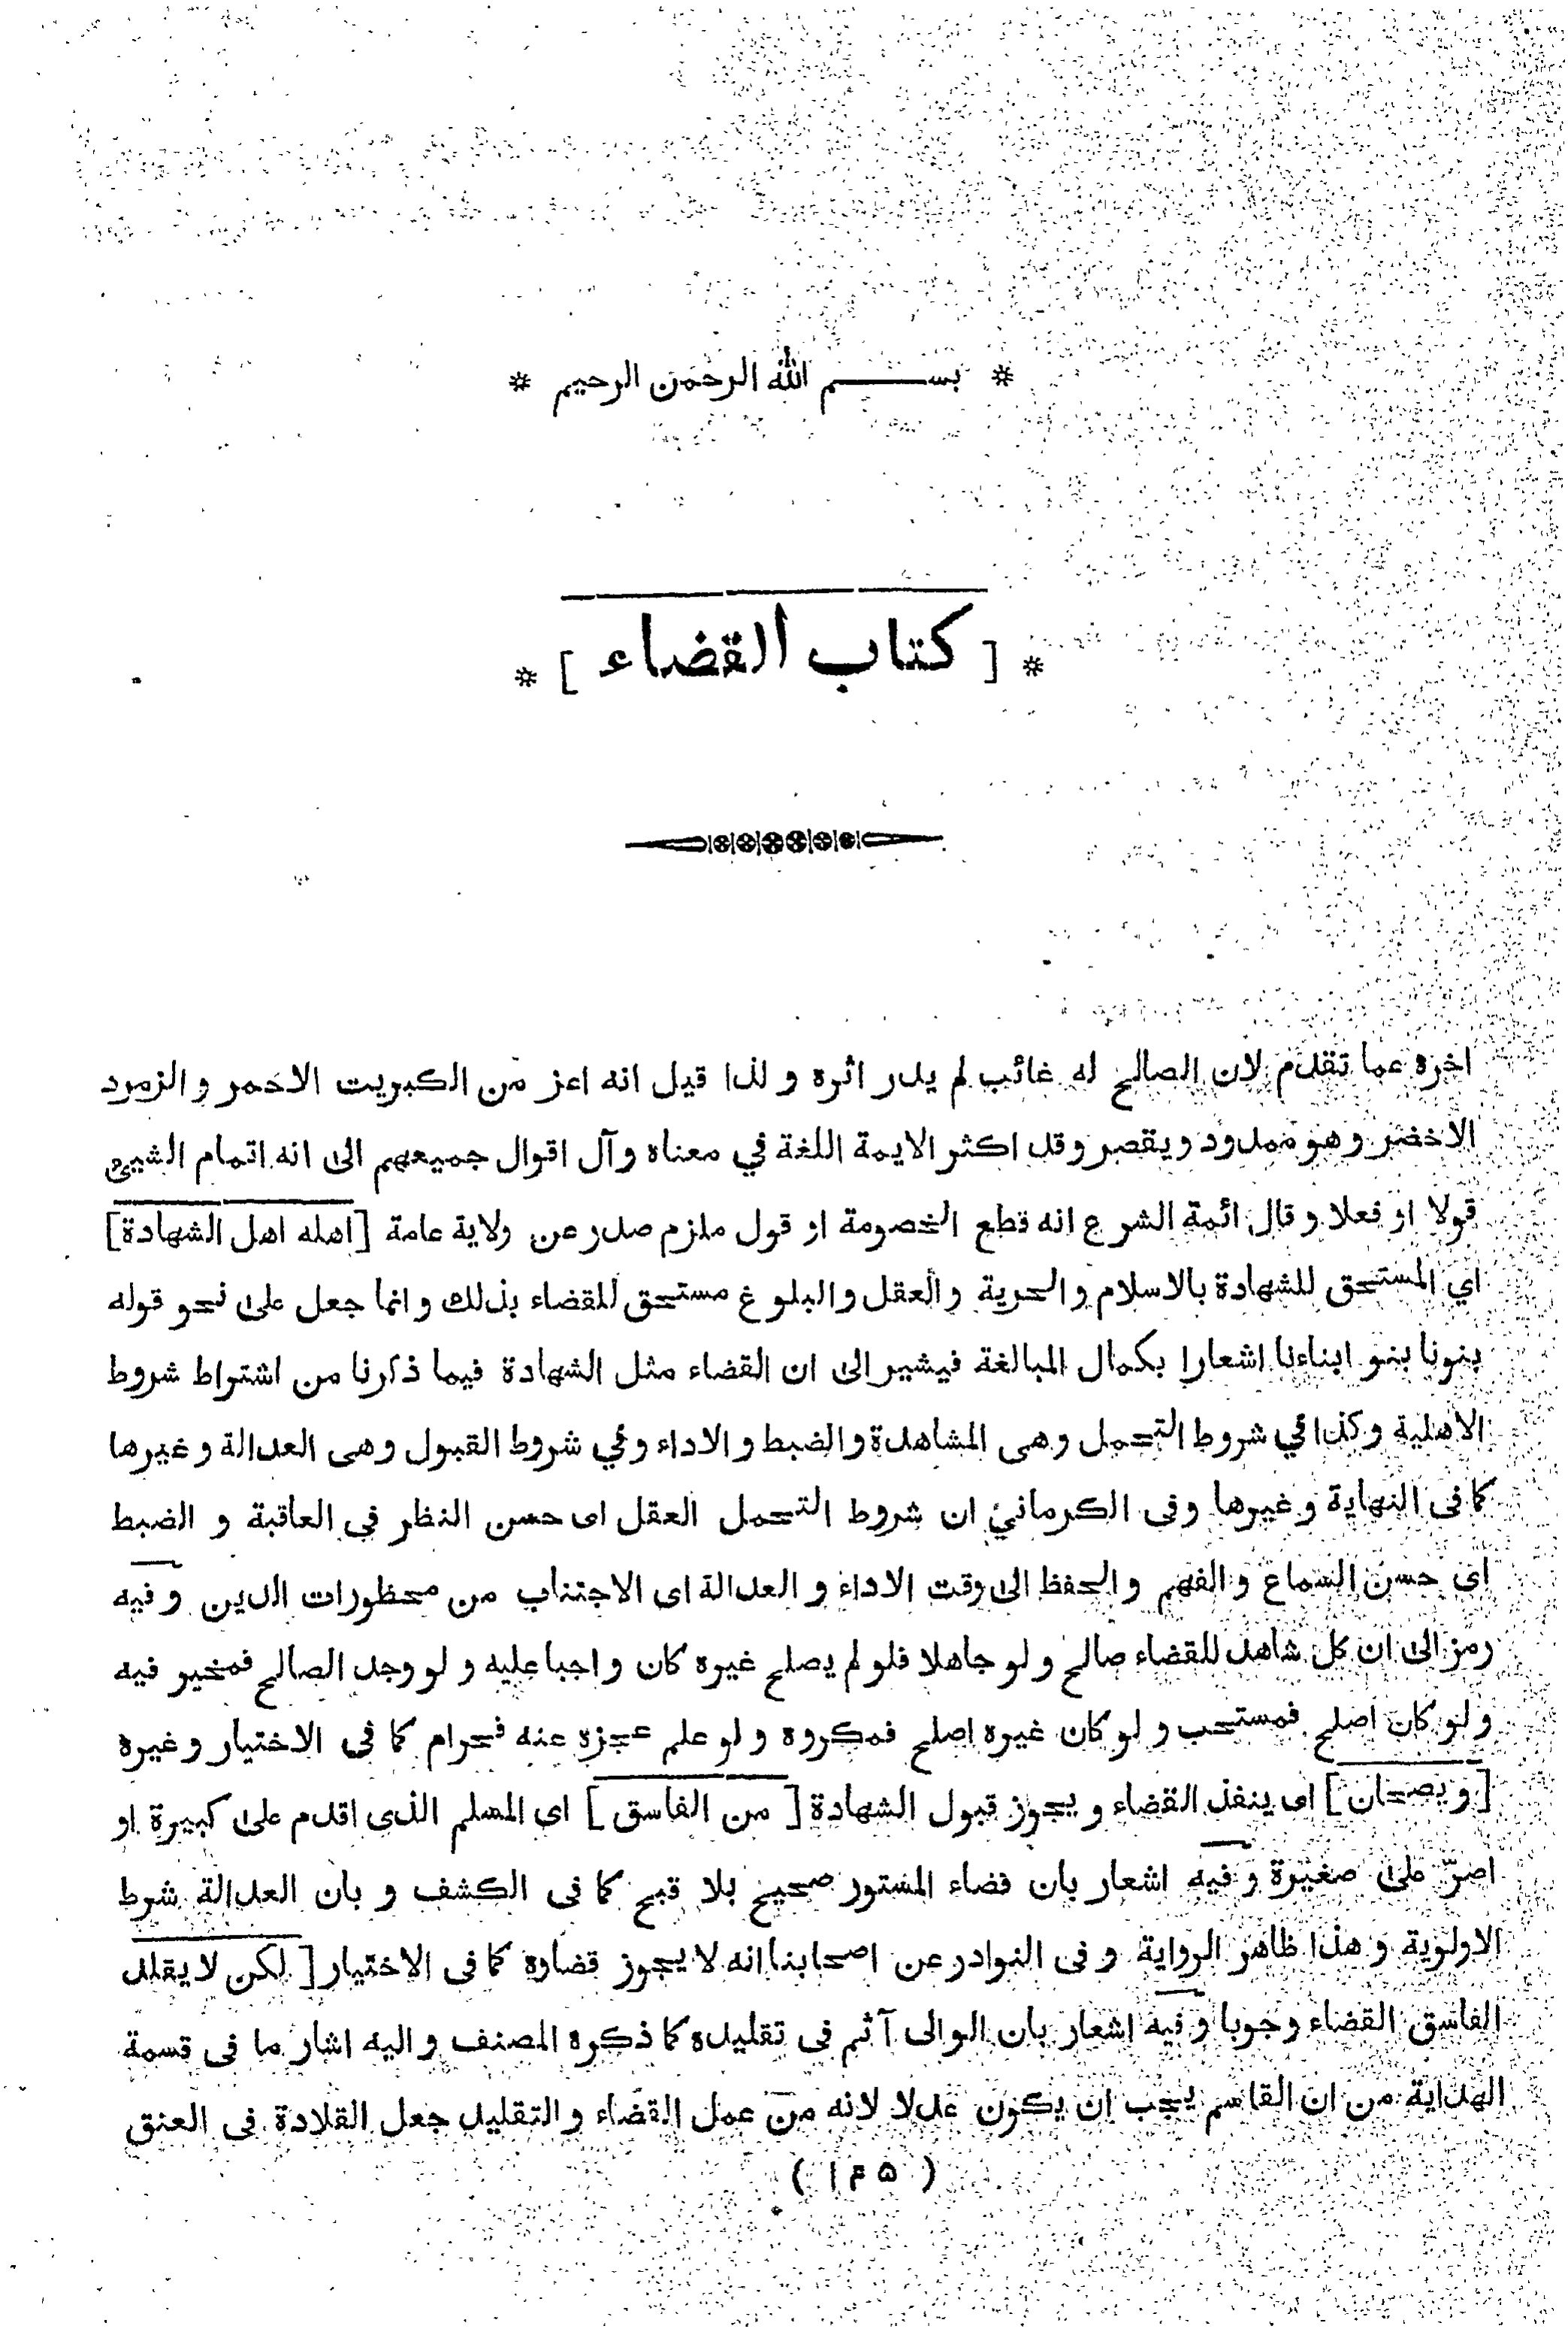 * بسم الله الرحمن الرحيم *
* [ كتاب القضاء ] *
اخره عما تقدم لان الصالح له غائب لم يدر اثره و لذا قيل انه اعز من الكبريت الاحمر و الزمرد
الاخضر و هو ممدود و يقصر و قد اكثر الايمة اللغة في معناه و آل اقوال جميعهم الى انه اتمام الشيئ
قولا او فعلا و قال ائمة الشرع انه قطع الخصومة او قول ملزم صدر عن ولاية عامة [اهله اهل الشهادة]
اي المستحق للشهادة بالاسلام و الحرية و العقل و البلوغ مستحق للقضاء بذلك و انما جعل على نحو قوله
بنونا بنو ابناءنا اشعارا بكمال المبالغة فيشير الى ان القضاء مثل الشهادة فيما ذكرنا من اشتراط شروط
الاهلية و كذا في شروط التحمل و هى المشاهدة و الضبط و الاداء و في شروط القبول و هى العدالة و غيرها
كما فى النهاية و غيرها و فى الكرماني ان شروط التحمل العقل اى حسن النظر في العاقبة و الضبط
اى حسن السماع و الفهم و الحفظ الى وقت الاداء و العدالة اى الاجتناب من محظورات الدين و فيه
رمز الى ان كل شاهد للقضاء صالح و لو جاهلا فلو لم يصلح غيره كان واجبا عليه و لو وجد الصالح فمخير فيه
و لو كان اصلح فمستحب و لو كان غيره اصلح فمكروه و لو علم عجزه عنه فحرام كما فى الاختيار و غيره
[و يصحان] اى ينفذ القضاء و يجوز قبول الشهادة [من الفاسق] اى المسلم الذى اقدم على كبيرة او
اصرّ على صغيرة و فيه اشعار بان قضاء المستور صحيح بلا قبح كما فى الكشف و بان العدالة شرط
الاولوية و هذا ظاهر الرواية و فى النوادر عن اصحابنا انه لا يجوز قضاوه كما فى الاختيار [لكن لا يقلد
الفاسق القضاء وجوبا و فيه اشعار بان الوالى آثم فى تقليده كما ذكره المصنف و اليه اشار ما فى قسمة
الهداية من ان القاسم يجب ان يكون عدلا لانه من عمل القضاء و التقليد جعل القلادة فى العنق
( ۱۴۵ )